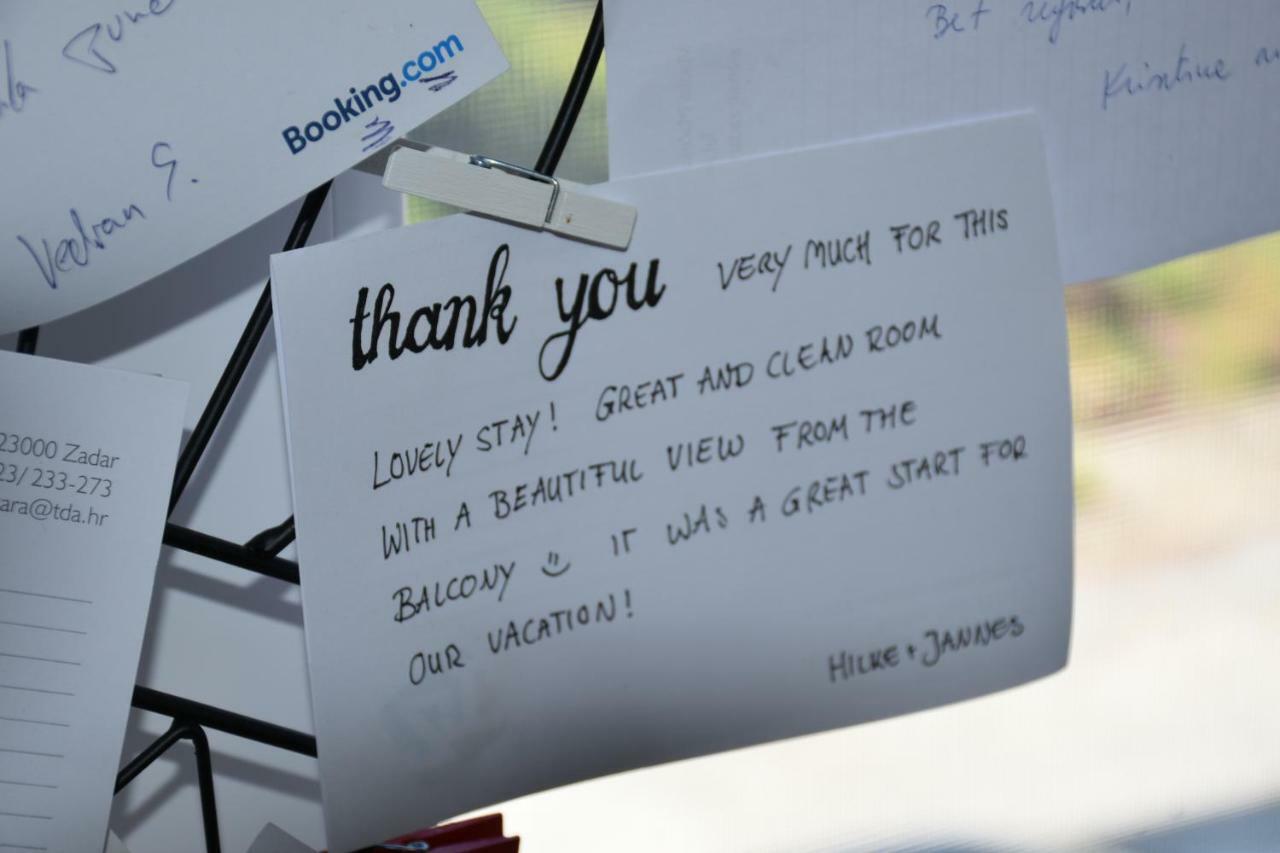 Booking.com
Vedran G.
Kristine
23000 Zadar
23/ 233-273
ara@tda.hr
thank you VERY MUCH FOR THIS
LOVELY STAY! GREAT AND CLEAN ROOM
WITH A BEAUTIFUL VIEW FROM THE
BALCONY IT WAS A GREAT START FOR
OUR VACATION!
HILKE + JANNES